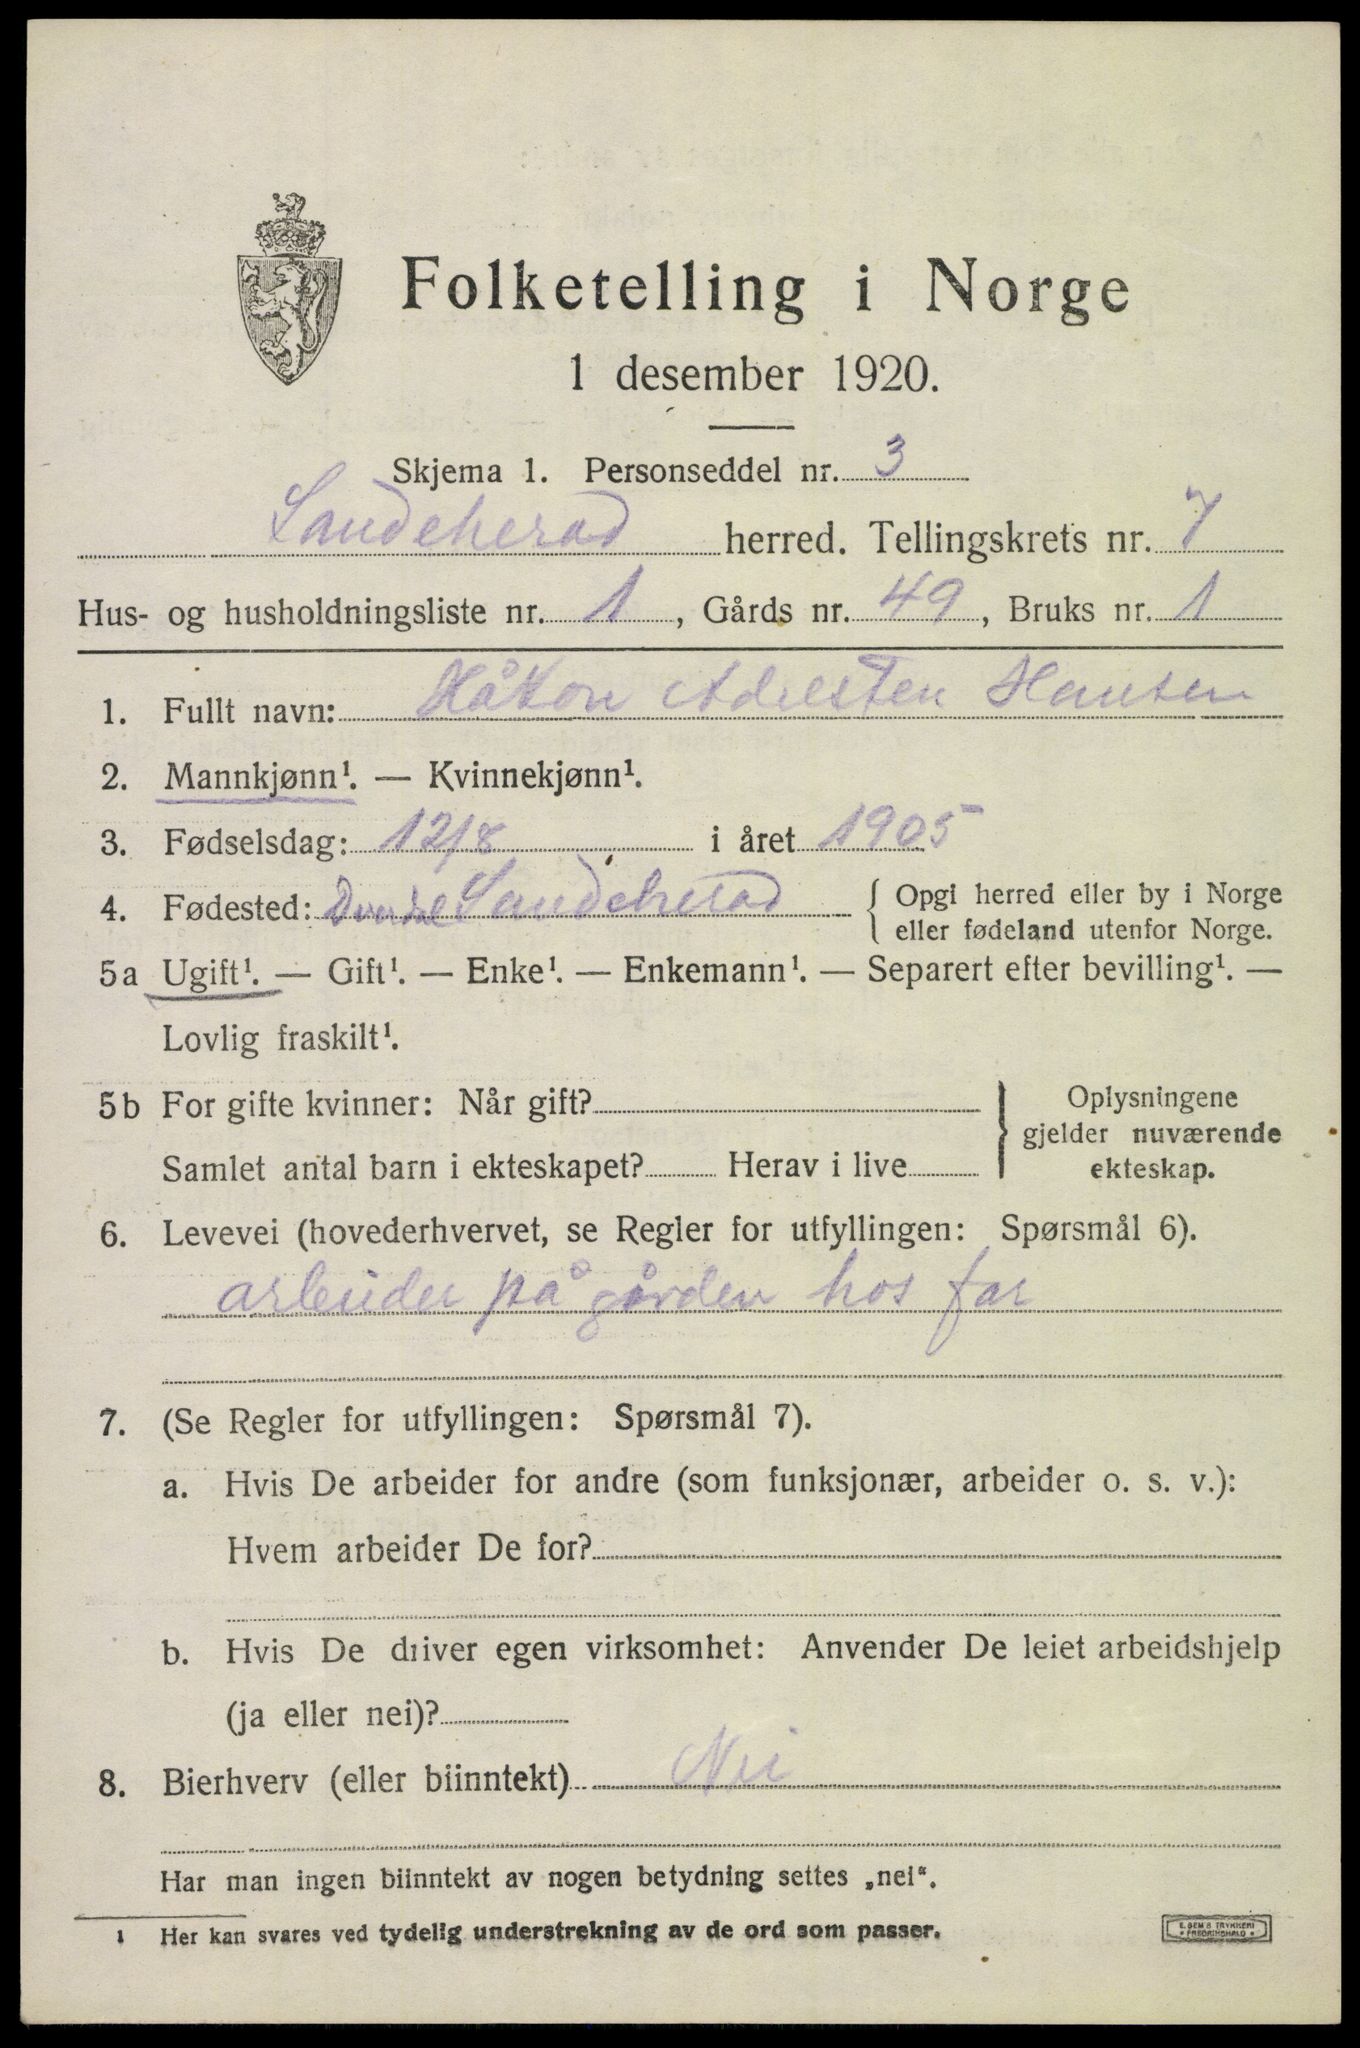 Folketelling i Norge
1 desember 1920.
Skjema 1. Personseddel nr. 3
Sandeherad herred. Tellingskrets nr. 7
Hus- og husholdningsliste nr. 1, Gårds nr. 49, Bruks nr. 1
1. Fullt navn: Håkon Adelsten Hansen
2. Mannkjønn¹. — Kvinnekjønn¹.
3. Fødselsdag: 12/8 i året 1905
4. Fødested: Sandeherad { Opgi herred eller by i Norge
eller fødeland utenfor Norge.
5a Ugift¹. — Gift¹. — Enke¹. — Enkemann¹. — Separert efter bevilling¹. —
Lovlig fraskilt¹.
5b For gifte kvinner: Når gift?
Samlet antal barn i ekteskapet? Herav i live
} Oplysningene
gjelder nuværende
ekteskap.
6. Levevei (hovederhvervet, se Regler for utfyllingen: Spørsmål 6).
arbeider på gården hos far
7. (Se Regler for utfyllingen: Spørsmål 7).
a. Hvis De arbeider for andre (som funksjonær, arbeider o. s. v.):
Hvem arbeider De for?
b. Hvis De driver egen virksomhet: Anvender De leiet arbeidshjelp
(ja eller nei)?
8. Bierhverv (eller biinntekt) Nei
Har man ingen biinntekt av nogen betydning settes „nei“.
1 Her kan svares ved tydelig understrekning av de ord som passer.
E. SEM'S TRYKKERI
* FREDRIKSHALD *